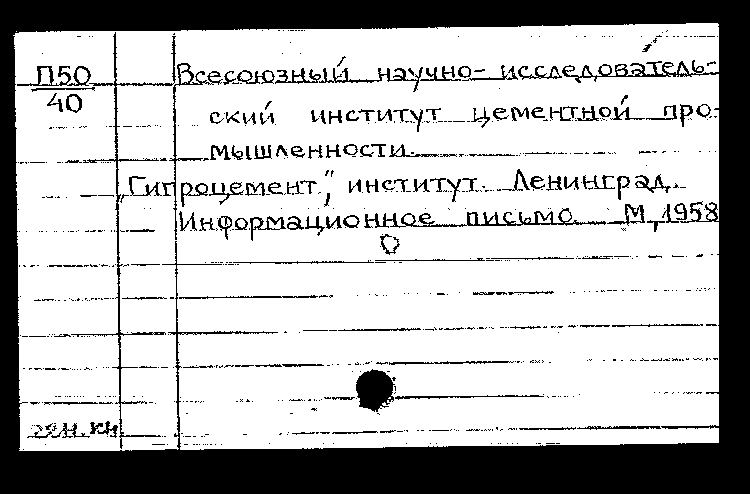 П50
40
Всесоюзный научно-исследователь-
ский институт цементной про-
мышленности.
"Гипроцемент", институт. Ленинград.
Информационное письмо. М, 1958